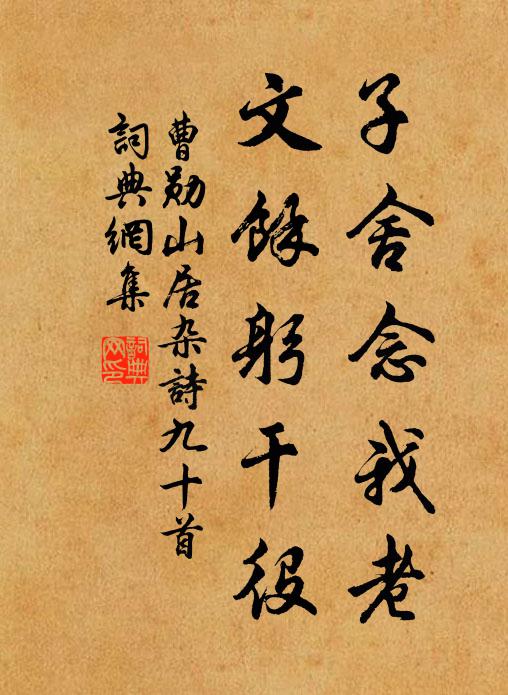 子舍念我老
文馀躬干役
曹勋山居杂詩九十首
詞典網集
詞典網印